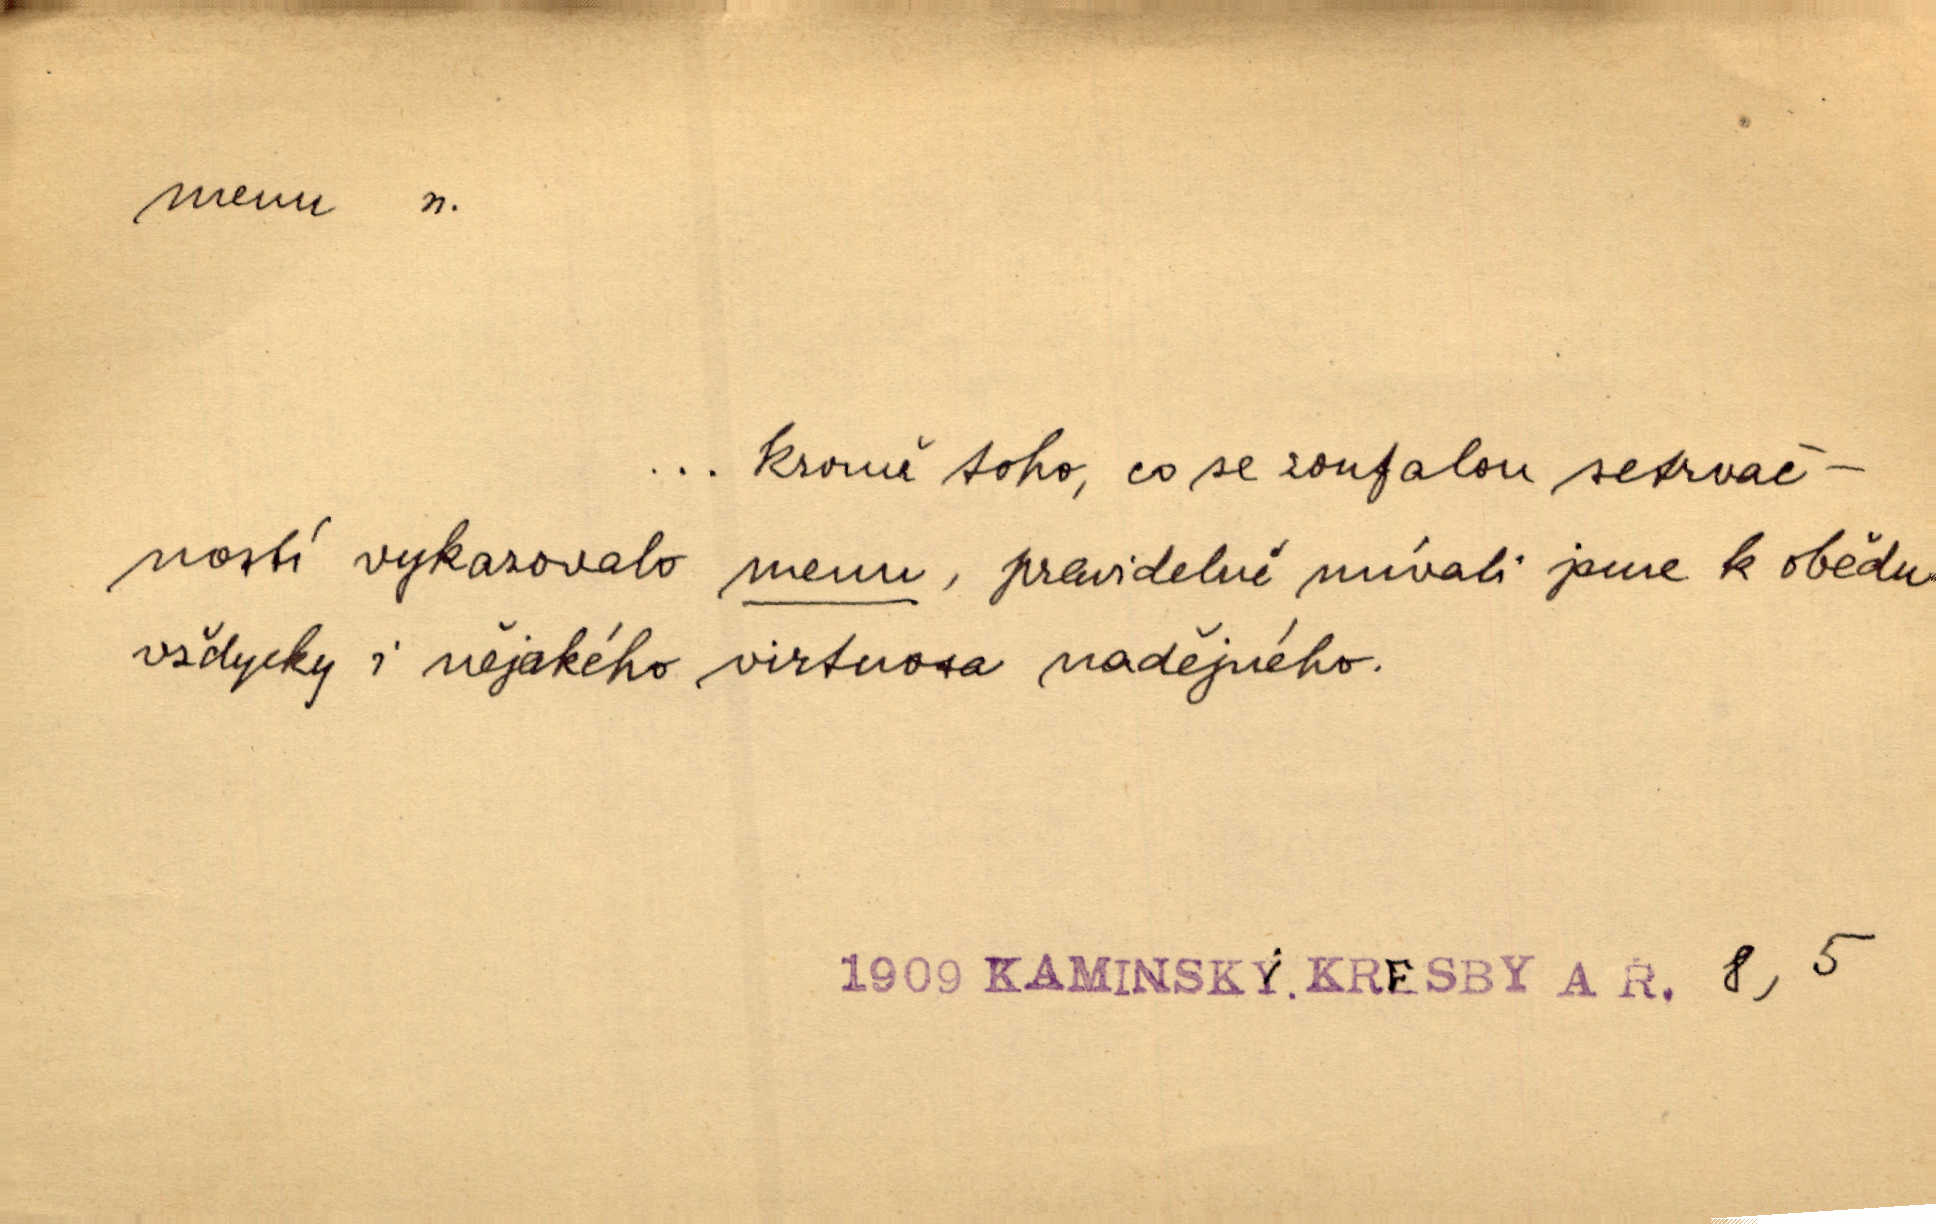 menu n.
... kromě toho, co se zoufalou setrvač-
ností vykazovalo menu, pravidelně mívali jsme k obědu
vždycky i nějakého virtuosa nadějného.
1909 KAMINSKÝ. KRESBY A R. 8, 5